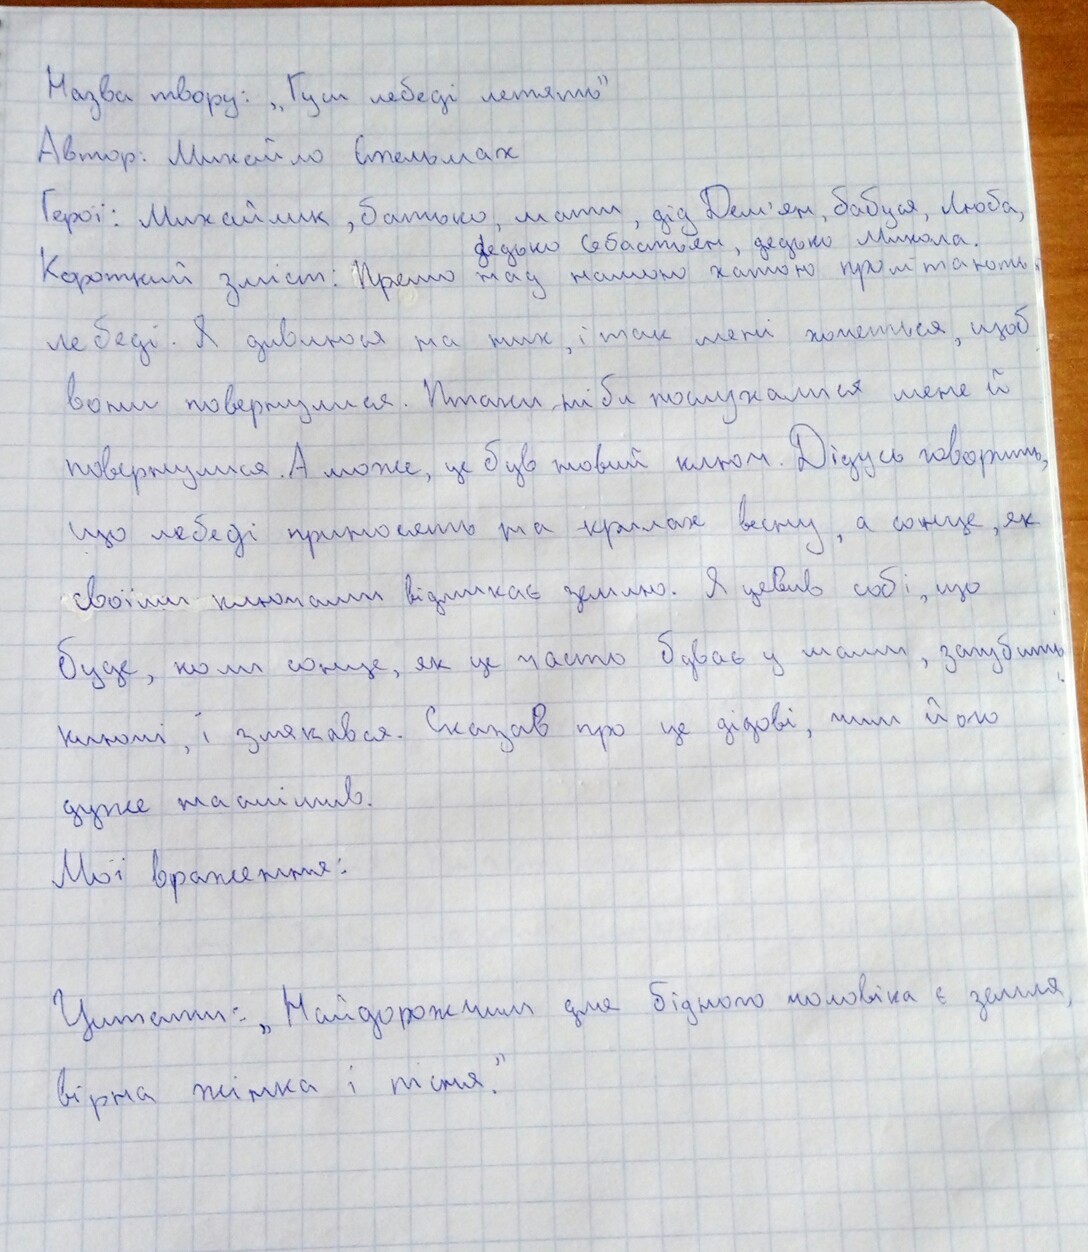 Назва твору: „Гуси лебеді летять"
Автор: Михайло Стельмах
Герої: Михайлик, батько, мати, дід Дем'ян, бабуся, Люба,
дядько Себастьян, дядько Микола.
Короткий зміст: Прямо над нашою хатою пролітають
лебеді. Я дивлюся на них, і так мені хочеться, щоб
вони повернулися. Птахи ніби послухалися мене й
повернулися. А може, це був новий ключ. Дідусь говорить,
що лебеді приносять на крилах весну, а сонце, як
своїми ключами відмикає землю. Я уявив собі, що
буде, коли сонце, як це часто буває у мами, загубить
ключі, і злякався. Сказав про це дідові, чим його
дуже насмішив.
Мої враження:
Цитати: „Найдорожчим для бідного чоловіка є земля,
вірна жінка і пісня."